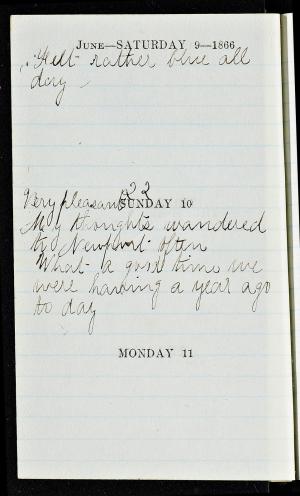 JUNE—SATURDAY 9—1866
Felt rather blue all
day
Very pleasant 22
SUNDAY 10
My thoughts wandered
to Newport often
What a good time we
were having a year ago
to day
MONDAY 11